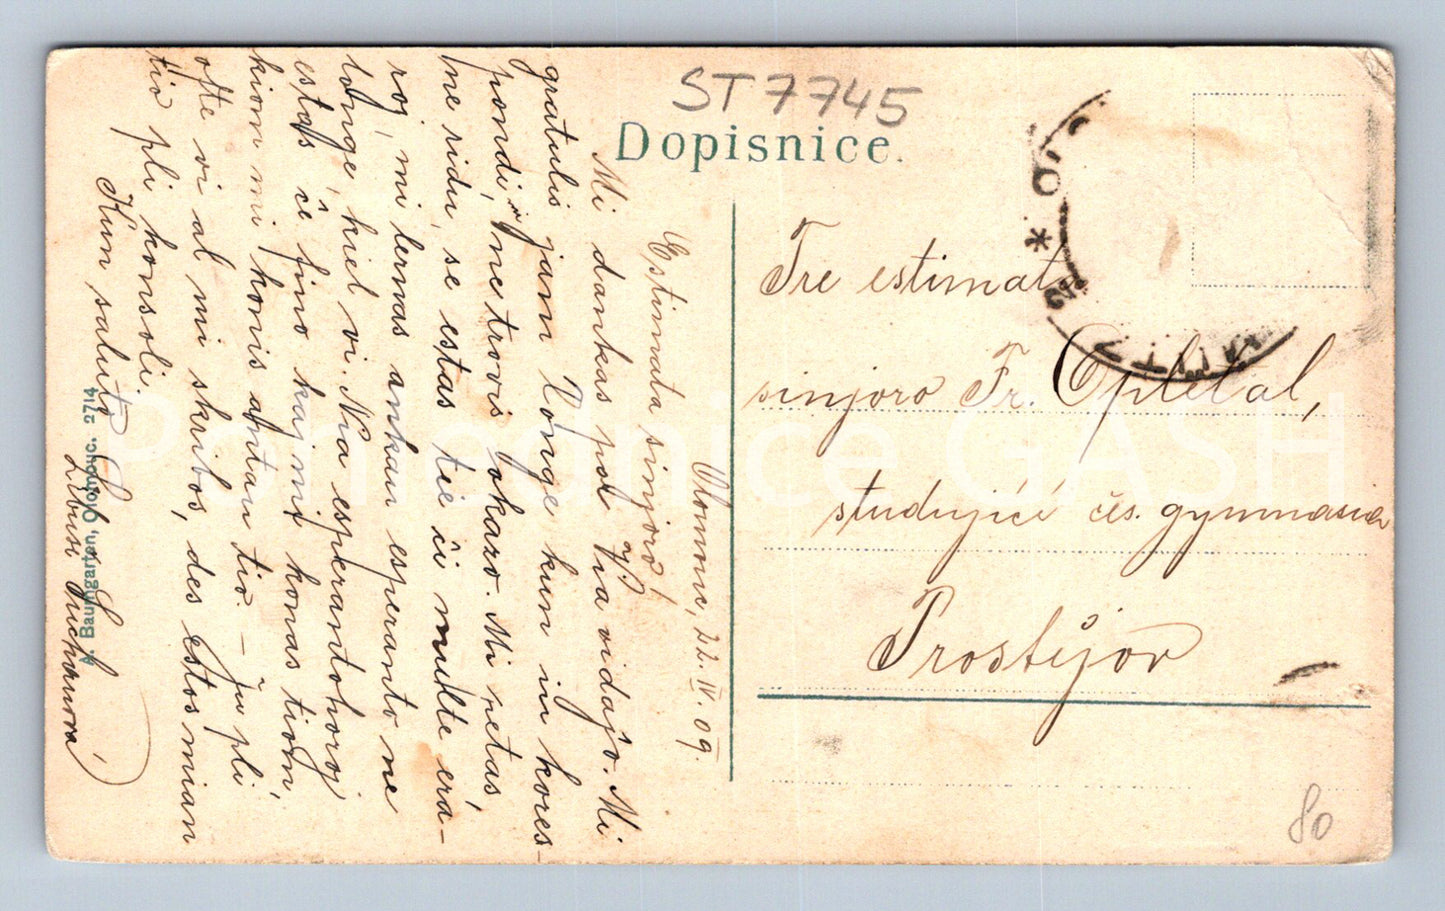 ST 7745
Dopisnice.
Olomouc, 22. IV. 09.
Estimata sinjoro!
Mi dankas pol Via vidajo. Mi
gratulis jam longe kun in kores-
pondi, ne trovis okazo. Mi petas
ne ridu, se estas tie ĉi multe era-
roj, mi lernas ankau esperanto ne
longe, kiel vi. Nia esperantohoroj
estas ĉe fino kaj mi konas tiom
kiom mi konis antau tio. – Ju pli
ofte vi al mi skribos, des estos mian
tio pli konsoli.
Kun saluto
Libuse Suchanová
A. Baumgarten, Olomouc. 2714
Tre estimata
sinjoro Fr. Opletal,
studující čes. gymnasia
Prostějov
80
Pohlednice GASH